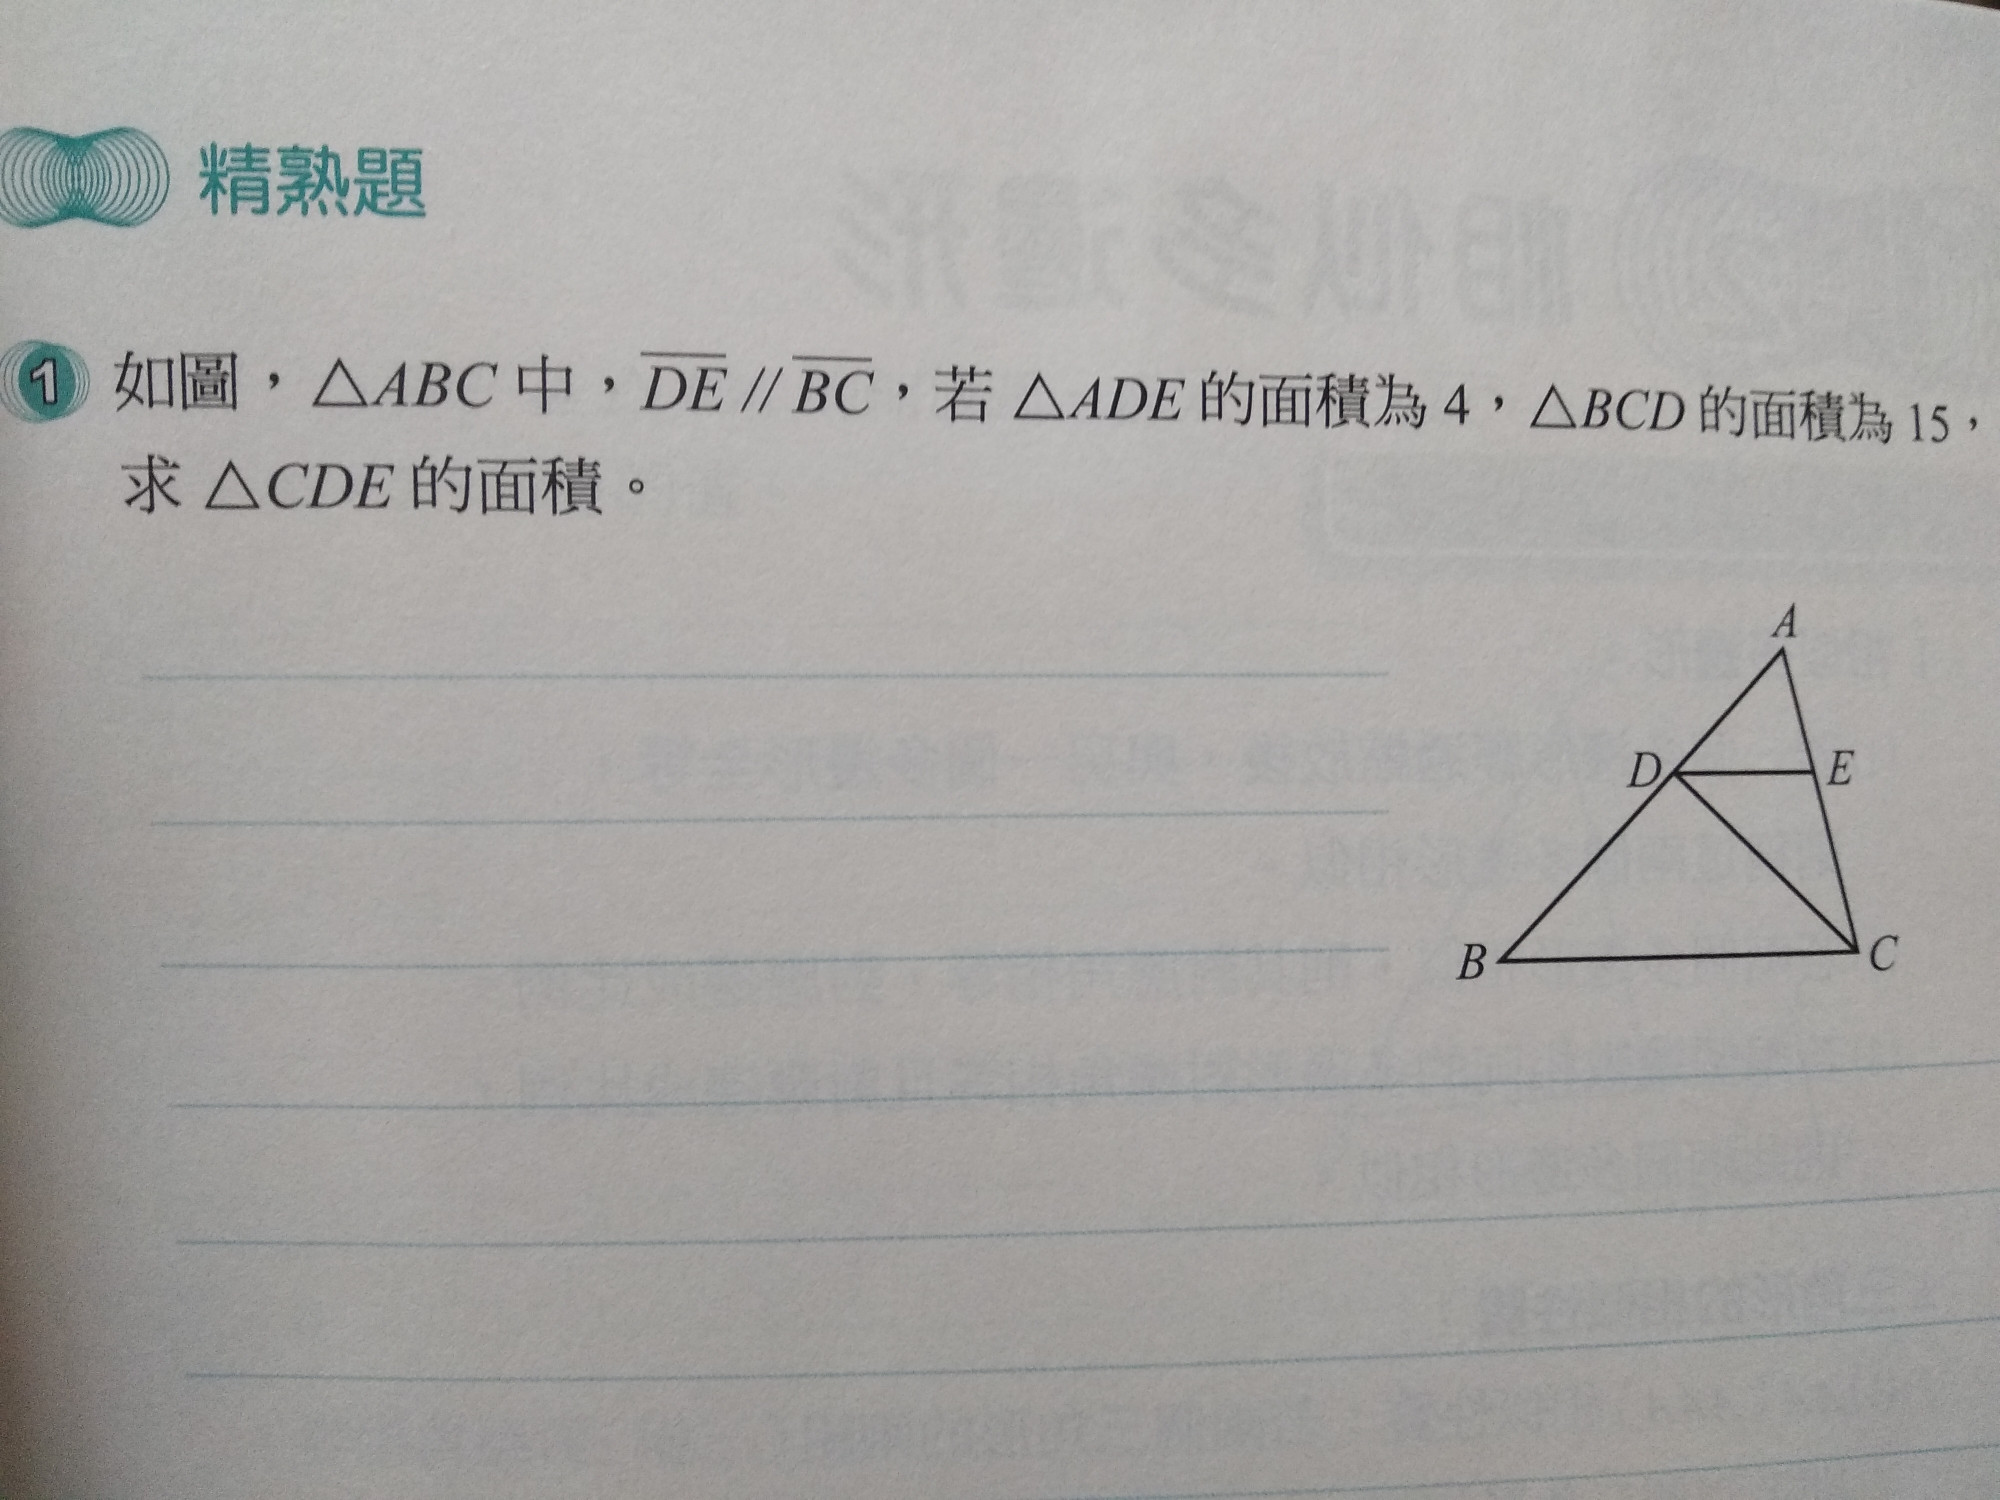 精熟題
1 如圖，△ABC 中，DE // BC，若 △ADE 的面積為 4，△BCD 的面積為 15，
求 △CDE 的面積。
A
D E
B C